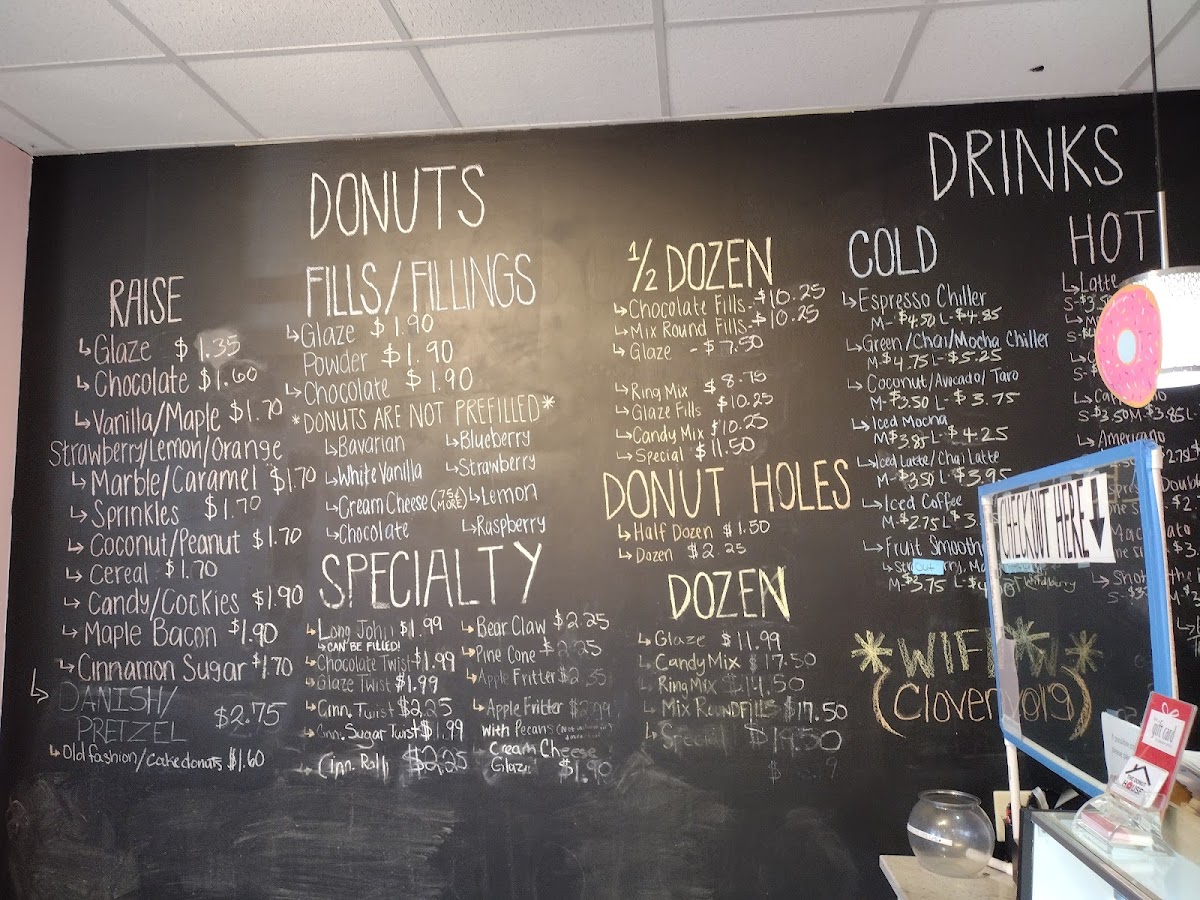 DONUTS
RAISE
Glaze $1.35
Chocolate $1.60
Vanilla/Maple $1.70
Strawberry/Lemon/Orange
Marble/Caramel $1.70
Sprinkles $1.70
Coconut/Peanut $1.70
Cereal $1.70
Candy/Cookies $1.90
Maple Bacon $1.90
Cinnamon Sugar $1.70
DANISH/
PRETZEL $2.75
Old fashion/cake donuts $1.60
FILLS/FILLINGS
Glaze $1.90
Powder $1.90
Chocolate $1.90
*DONUTS ARE NOT PREFILLED*
Bavarian
White Vanilla
Cream Cheese (75¢ MORE)
Chocolate
Blueberry
Strawberry
Lemon
Raspberry
SPECIALTY
Long John $1.99
CAN BE FILLED!
Chocolate Twist $1.99
Glaze Twist $1.99
Cinn. Twist $2.25
Cinn. Sugar Twist $1.99
Cinn. Roll $2.25
Bear Claw $2.25
Pine Cone $2.25
Apple Fritter
Apple Fritter
With Pecans
Cream Cheese
Glaze $1.90
1/2 DOZEN
Chocolate Fills - $10.25
Mix Round Fills - $10.25
Glaze - $7.50
Ring Mix $8.75
Glaze Fills $10.25
Candy Mix $10.25
Special $11.50
DONUT HOLES
Half Dozen $1.50
Dozen $2.25
DOZEN
Glaze $11.99
Candy Mix $17.50
Ring Mix $14.50
Mix ROUNDFILLS $17.50
Special $19.50
DRINKS
COLD
Espresso Chiller
M- $4.50 L- $4.85
Green/Chai/Mocha Chiller
M $4.75 L- $5.25
Coconut/Avocado/Taro
M- $3.50 L- $3.75
Iced Mocha
M $3.85 L- $4.25
Iced Latte/Chai Latte
M- $3.50 L- $3.95
Iced Coffee
M- $2.75 L-
Fruit Smooth
Out
M $3.75 L-
WIFI
HOT
Latte
Americano
CHECKOUT HERE
gift card
THE DONUT
HOUSE